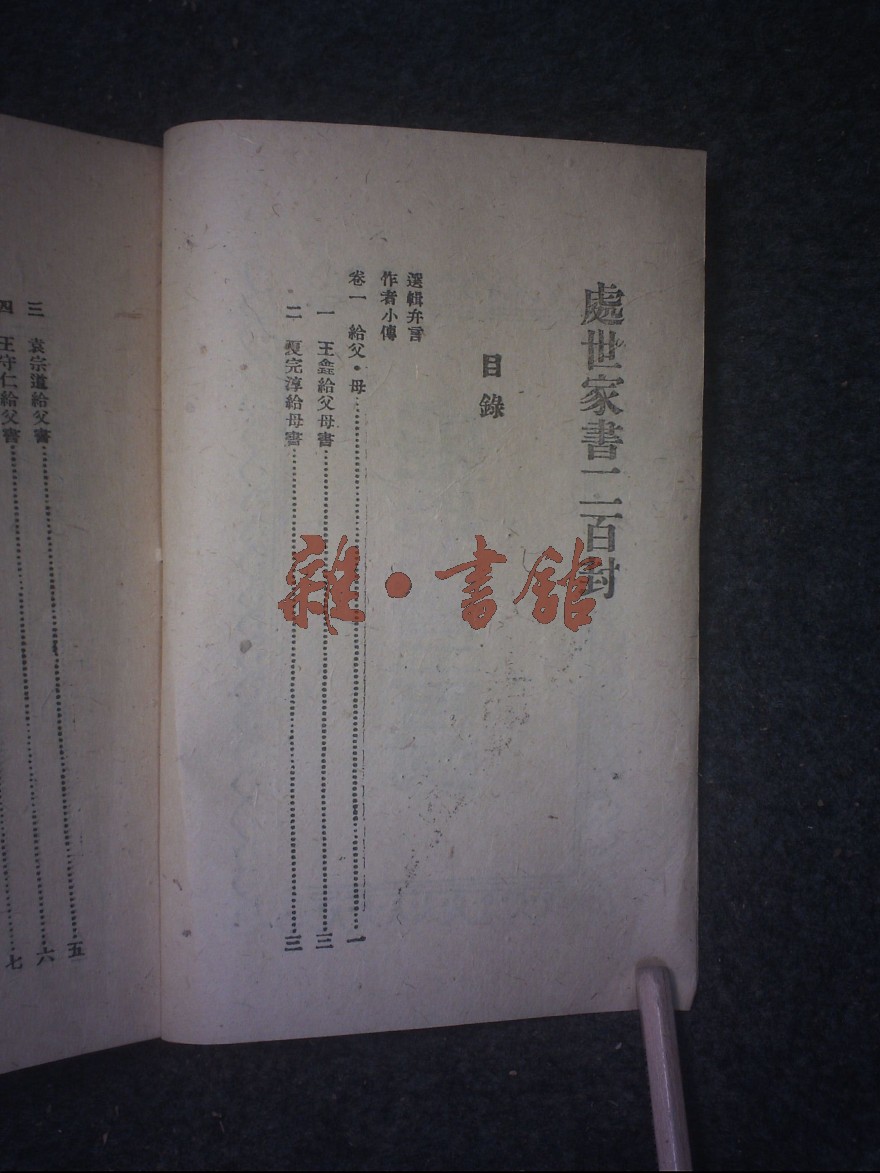 處世家書二百封
目錄
選輯弁言
作者小傳
卷一 給父·母……一
一 王鑫給父母書……三
二 夏完淳給母書……三
五
三 袁宗道給父書……六
四 王守仁給父書……七
雜·書館